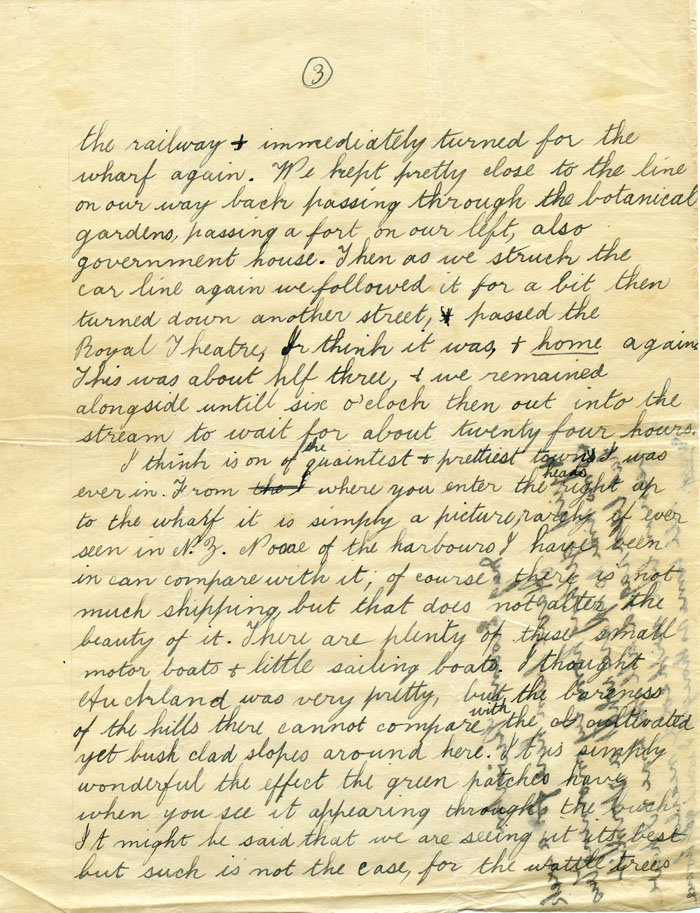 3
the railway + immediately turned for the
wharf again. We kept pretty close to the line
on our way back passing through the botanical
gardens, passing a fort, on our left, also
government house. Then as we struck the
car line again we followed it for a bit then
turned down another street, & passed the
Royal Theatre, I think it was, + home again
This was about hlf three, & we remained
alongside untill six o'clock then out into the
stream to wait for about twenty four hours.
I think is on of the quaintest + prettiest towns I was
ever in. From the where you enter the heads right up
to the wharf it is simply a picture, rarely if ever
seen in N.Z. None of the harbours I have been
in can compare with it; of course there is not
much shipping, but that does not alter the
beauty of it. There are plenty of these small
motor boats + little sailing boats. I thought
Auckland was very pretty, but the bareness
of the hills there cannot compare with the cultivated
yet bush clad slopes around here. It is simply
wonderful the effect the green patches have
when you see it appearing through the bush.
It might be said that we are seeing it its best
but such is not the case, for the wattle trees